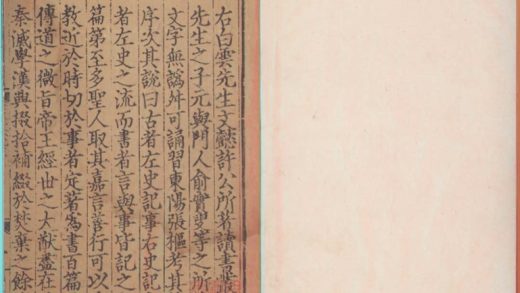 右白雲先生文懿許公所著讀書叢
先生之子元與門人俞實叟等之所
文字無譌舛可誦習東陽張樞考其
序次其說曰古者左史記事右史記
者左史之流而書者言與事皆記之
篇第至多聖人取其嘉言善行可以
教近於時切於事者定著爲書百篇
傳道之微旨帝王經世之大猷盡在
秦滅學漢興掇拾補綴於焚棄之餘